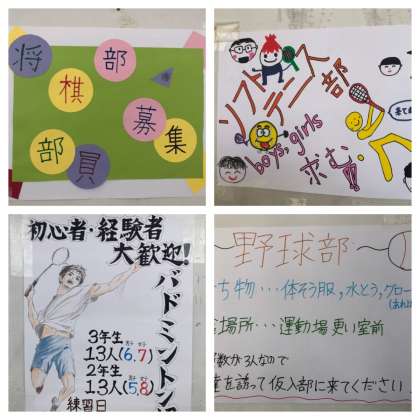 将棋部
部員募集
ソフト
テニス部
boys, girls
求む!!
初心者・経験者
大歓迎!
バドミントン
3年生
13人(6,7)
2年生
13人(5,8)
練習日
野球部
ち物…体そう服,水とう,グロー
場所…運動場更い室前
数が3人なので
を誘って仮入部に来てください